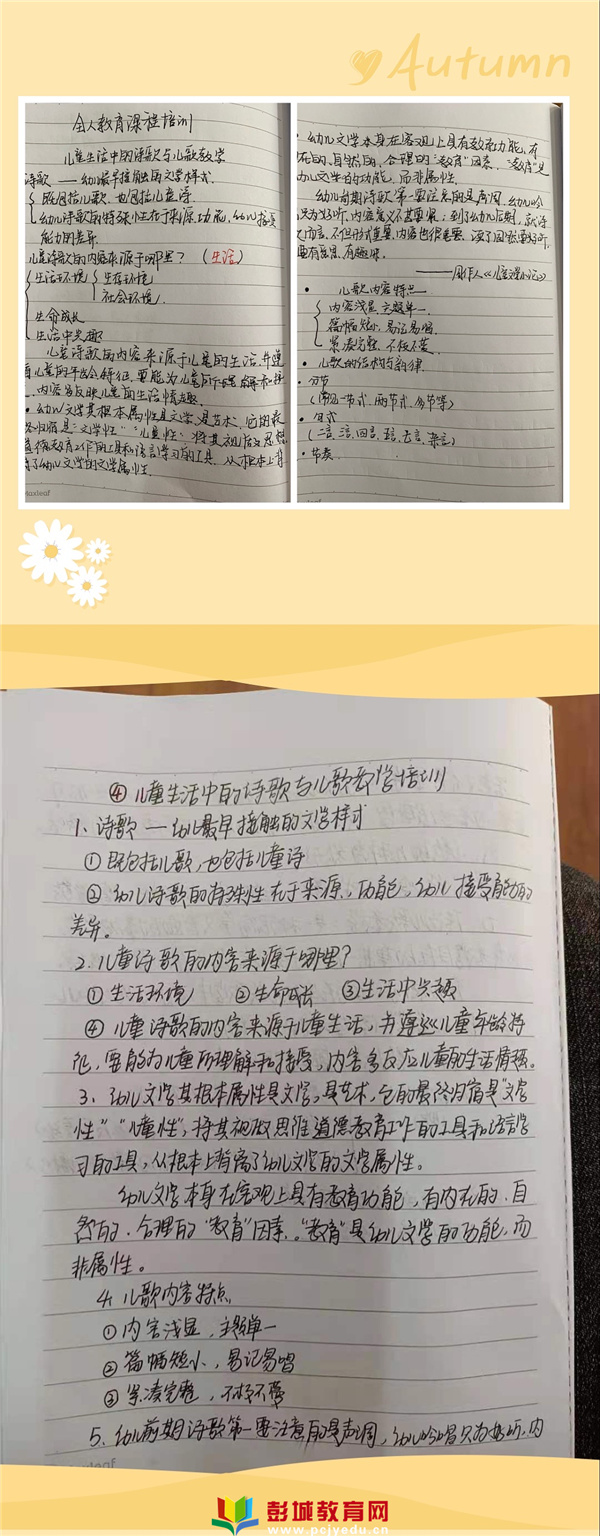 Autumn
全人教育课程培训
儿童生活中的诗歌与儿歌教学
诗歌 —— 幼儿最早接触的文学样式.
既包括儿歌.也包括儿童诗.
幼儿诗歌的特殊性在于来源.功能.幼儿接受
能力的差异.
儿童诗歌的内容来源于哪里?(生活)
生活环境 生存环境
社会环境.
生命成长
生活中失趣
儿童诗歌的内容来源于儿童的生活.并遵
循儿童的年龄特征.要能为儿童所理解和接
.内容多反映儿童的生活情趣.
·幼儿文学其根本属性是文学.是艺术.它的最
终归宿是"文学性""儿童性".将其视做思想
道德教育工作的工具和语言学习的工具.从根本上背
离了幼儿文学的文学属性.
Maxleaf
·幼儿文学本身在客观上具有教育功能.有
在的.自然的.合理的"教育"因素."教育"是
幼儿文学的功能.而非属性.
幼儿前期诗歌第一要注意的是声调.幼儿吟
只为好听.内容意义不甚要紧;到幼儿后期.就诗
而言.不但形式重要.内容也很重要.读了固然要好听.
要有意思.有趣味.
——周作人《儿童漫小记》
·儿歌内容特点
内容浅显.主题单一.
篇幅短小.易记易唱.
·儿歌的结构与韵律.
·分节
(常见一节式.两节式.多节等)
·句式
(二言.三言.四言.五言.七言.杂言)
·节奏.
④ 儿童生活中的诗歌与儿歌教学培训
1、诗歌 — 幼儿最早接触的文学样式
① 既包括儿歌,也包括儿童诗
② 幼儿诗歌的特殊性在于来源、功能,幼儿接受能力的
差异。
2. 儿童诗歌的内容来源于哪里?
① 生活环境 ② 生命成长 ③ 生活中失趣
④ 儿童诗歌的内容来源于儿童生活,并遵巡儿童年龄特
征,要能为儿童所理解和接受,内容多反应儿童的生活情趣。
3、幼儿文学其根本属性是文学,是艺术,它的最终归宿是"文学
性""儿童性",将其视做思维道德教育工作的工具和语言学
习的工具,从根本上背离了幼儿文学的文学属性。
幼儿文学本身在客观上具有教育功能,有内在的、自
然的、合理的"教育"因素。"教育"是幼儿文学的功能,而
非属性。
4. 儿歌内容特点
① 内容浅显,主题单一
② 篇幅短小,易记易唱
5、幼儿前期诗歌第一要注意的是声调,幼儿吟唱只为好听,内
彭城教育网
www.pcjyedu.cn